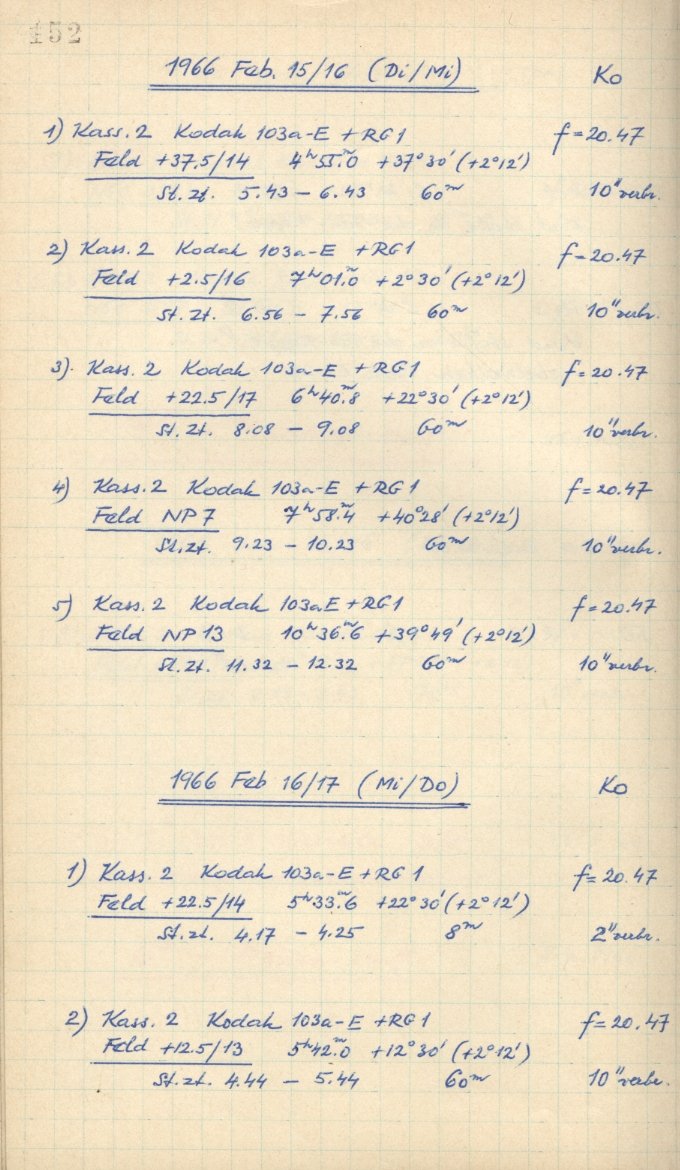 152
1966 Feb. 15/16 (Di/Mi) Ko
1) Kass. 2 Kodak 103a-E + RG1 f = 20.47
Feld +37.5/14 4ʰ55ᵐ.0 +37°30' (+2°12')
St. zt. 5.43 – 6.43 60ᵐ 10" verbr.
2) Kass. 2 Kodak 103a-E + RG1 f = 20.47
Feld +2.5/16 7ʰ01ᵐ.0 +2°30' (+2°12')
St. zt. 6.56 – 7.56 60ᵐ 10" verbr.
3) Kass. 2 Kodak 103a-E + RG1 f = 20.47
Feld +22.5/17 6ʰ40ᵐ.8 +22°30' (+2°12')
St. zt. 8.08 – 9.08 60ᵐ 10" verbr.
4) Kass. 2 Kodak 103a-E + RG1 f = 20.47
Feld NP 7 7ʰ58ᵐ.4 +40°28' (+2°12')
St. zt. 9.23 – 10.23 60ᵐ 10" verbr.
5) Kass. 2 Kodak 103aE + RG1 f = 20.47
Feld NP 13 10ʰ36ᵐ.6 +39°49' (+2°12')
St. zt. 11.32 – 12.32 60ᵐ 10" verbr.
1966 Feb 16/17 (Mi/Do) Ko
1) Kass. 2 Kodak 103a-E + RG1 f = 20.47
Feld +22.5/14 5ʰ33ᵐ.6 +22°30' (+2°12')
St. zt. 4.17 – 4.25 8ᵐ 2" verbr.
2) Kass. 2 Kodak 103a-E + RG1 f = 20.47
Feld +12.5/13 5ʰ42ᵐ.0 +12°30' (+2°12')
St. zt. 4.44 – 5.44 60ᵐ 10" verbr.